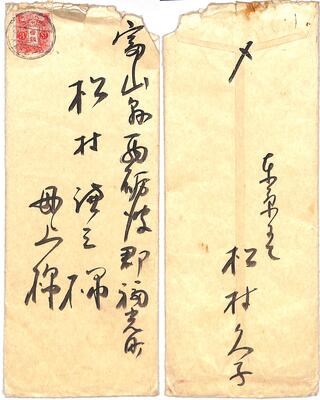 富山県西砺波郡福光町
松村謙三様
母上様
〆
東京にて
松村久子